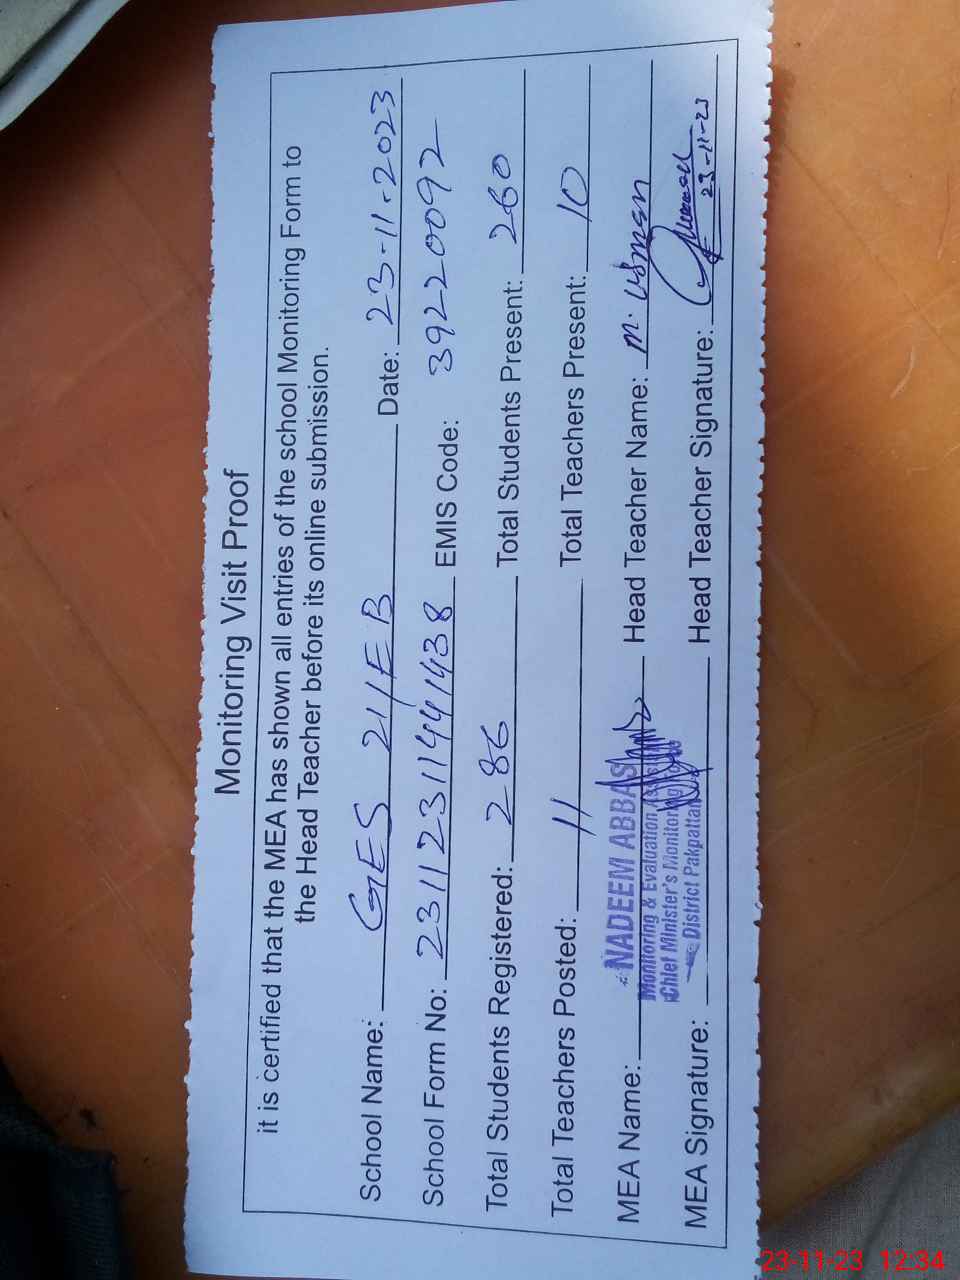 Monitoring Visit Proof
it is certified that the MEA has shown all entries of the school Monitoring Form to
the Head Teacher before its online submission.
School Name: GES 21/EB Date: 23-11-2023
School Form No: 23112311441438 EMIS Code: 39220092
Total Students Registered: 286 Total Students Present: 260
Total Teachers Posted: 11 Total Teachers Present: 10
MEA Name: NADEEM ABBAS Head Teacher Name: M. Usman
Monitoring & Evaluation
Chief Minister's Monitoring
District Pakpattan
MEA Signature: Head Teacher Signature: 23-11-23
23-11-23 12:34